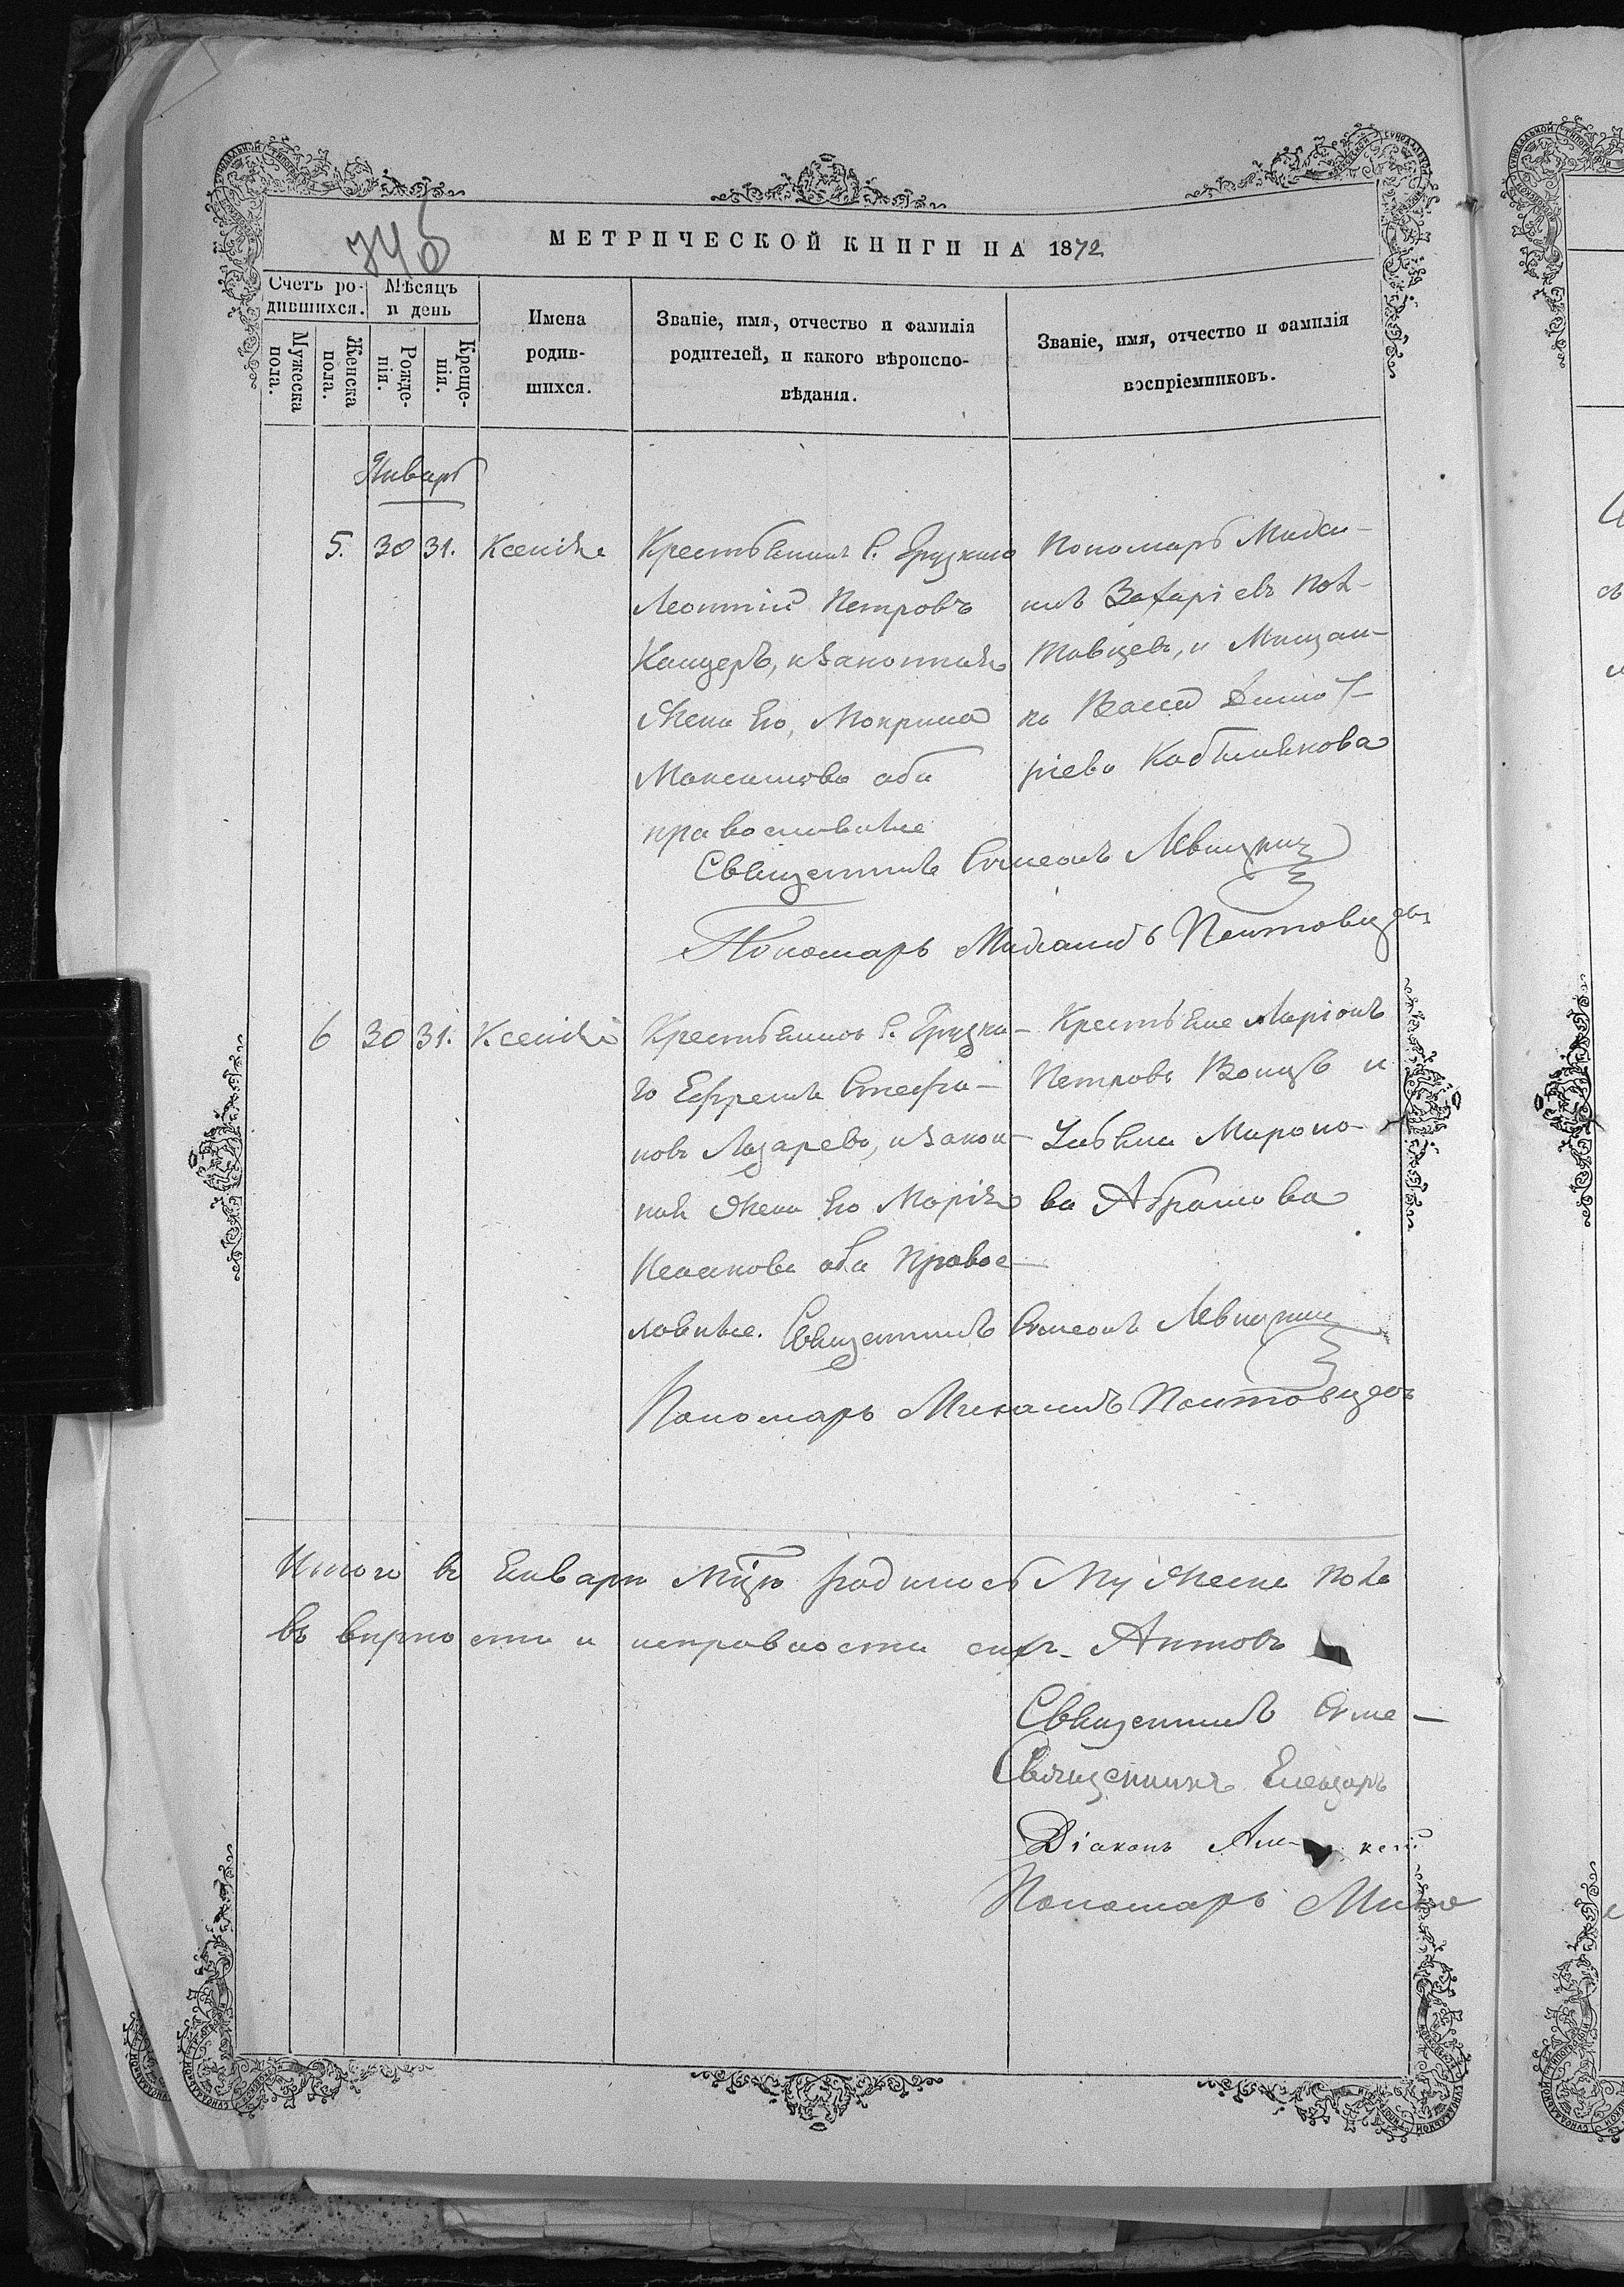 746
МЕТРИЧЕСКОЙ КНИГИ НА 1872
Счетъ ро-
дившихся.
Мѣсяцъ
и день
Мужеска
пола.
Женска
пола.
Рожде-
нія.
Креще-
нія.
Имена
родив-
шихся.
Званіе, имя, отчество и фамилія
родителей, и какого вѣроиспо-
вѣданія.
Званіе, имя, отчество и фамилія
воспріемниковъ.
Январь
5. 30 31. Ксенія
Крестьянинъ С. Грузкаго
Леонтій Петровъ
законная
жена Его, Мокрина
Максимова оба
православные
Пономарь Миха-
илъ Захаріевъ Пол-
товцевъ, и Мищан-
ка Васса Димит-
ріева
Священникъ Симеонъ Левицкий
Пономарь Михаилъ Полтовцевъ
6 30 31. Ксенія
Крестьянинъ С. Грузка-
го Ефремъ Стефа-
новъ Лазаревъ, и закон-
ная жена Его Марія
оба правос-
лавные.
Крестьяне Ларіонъ
Петровъ и
Ульяна Мироно-
ва Абрамова
Священникъ Симеонъ Левицкий
Пономарь Михаилъ Полтовцевъ
Итого въ Январи родилось Мужеска пола
въ вирности и исправности сихъ Актовъ
Священникъ Симе-
Священникъ Елеазаръ
Діаконъ
Пономарь Миха